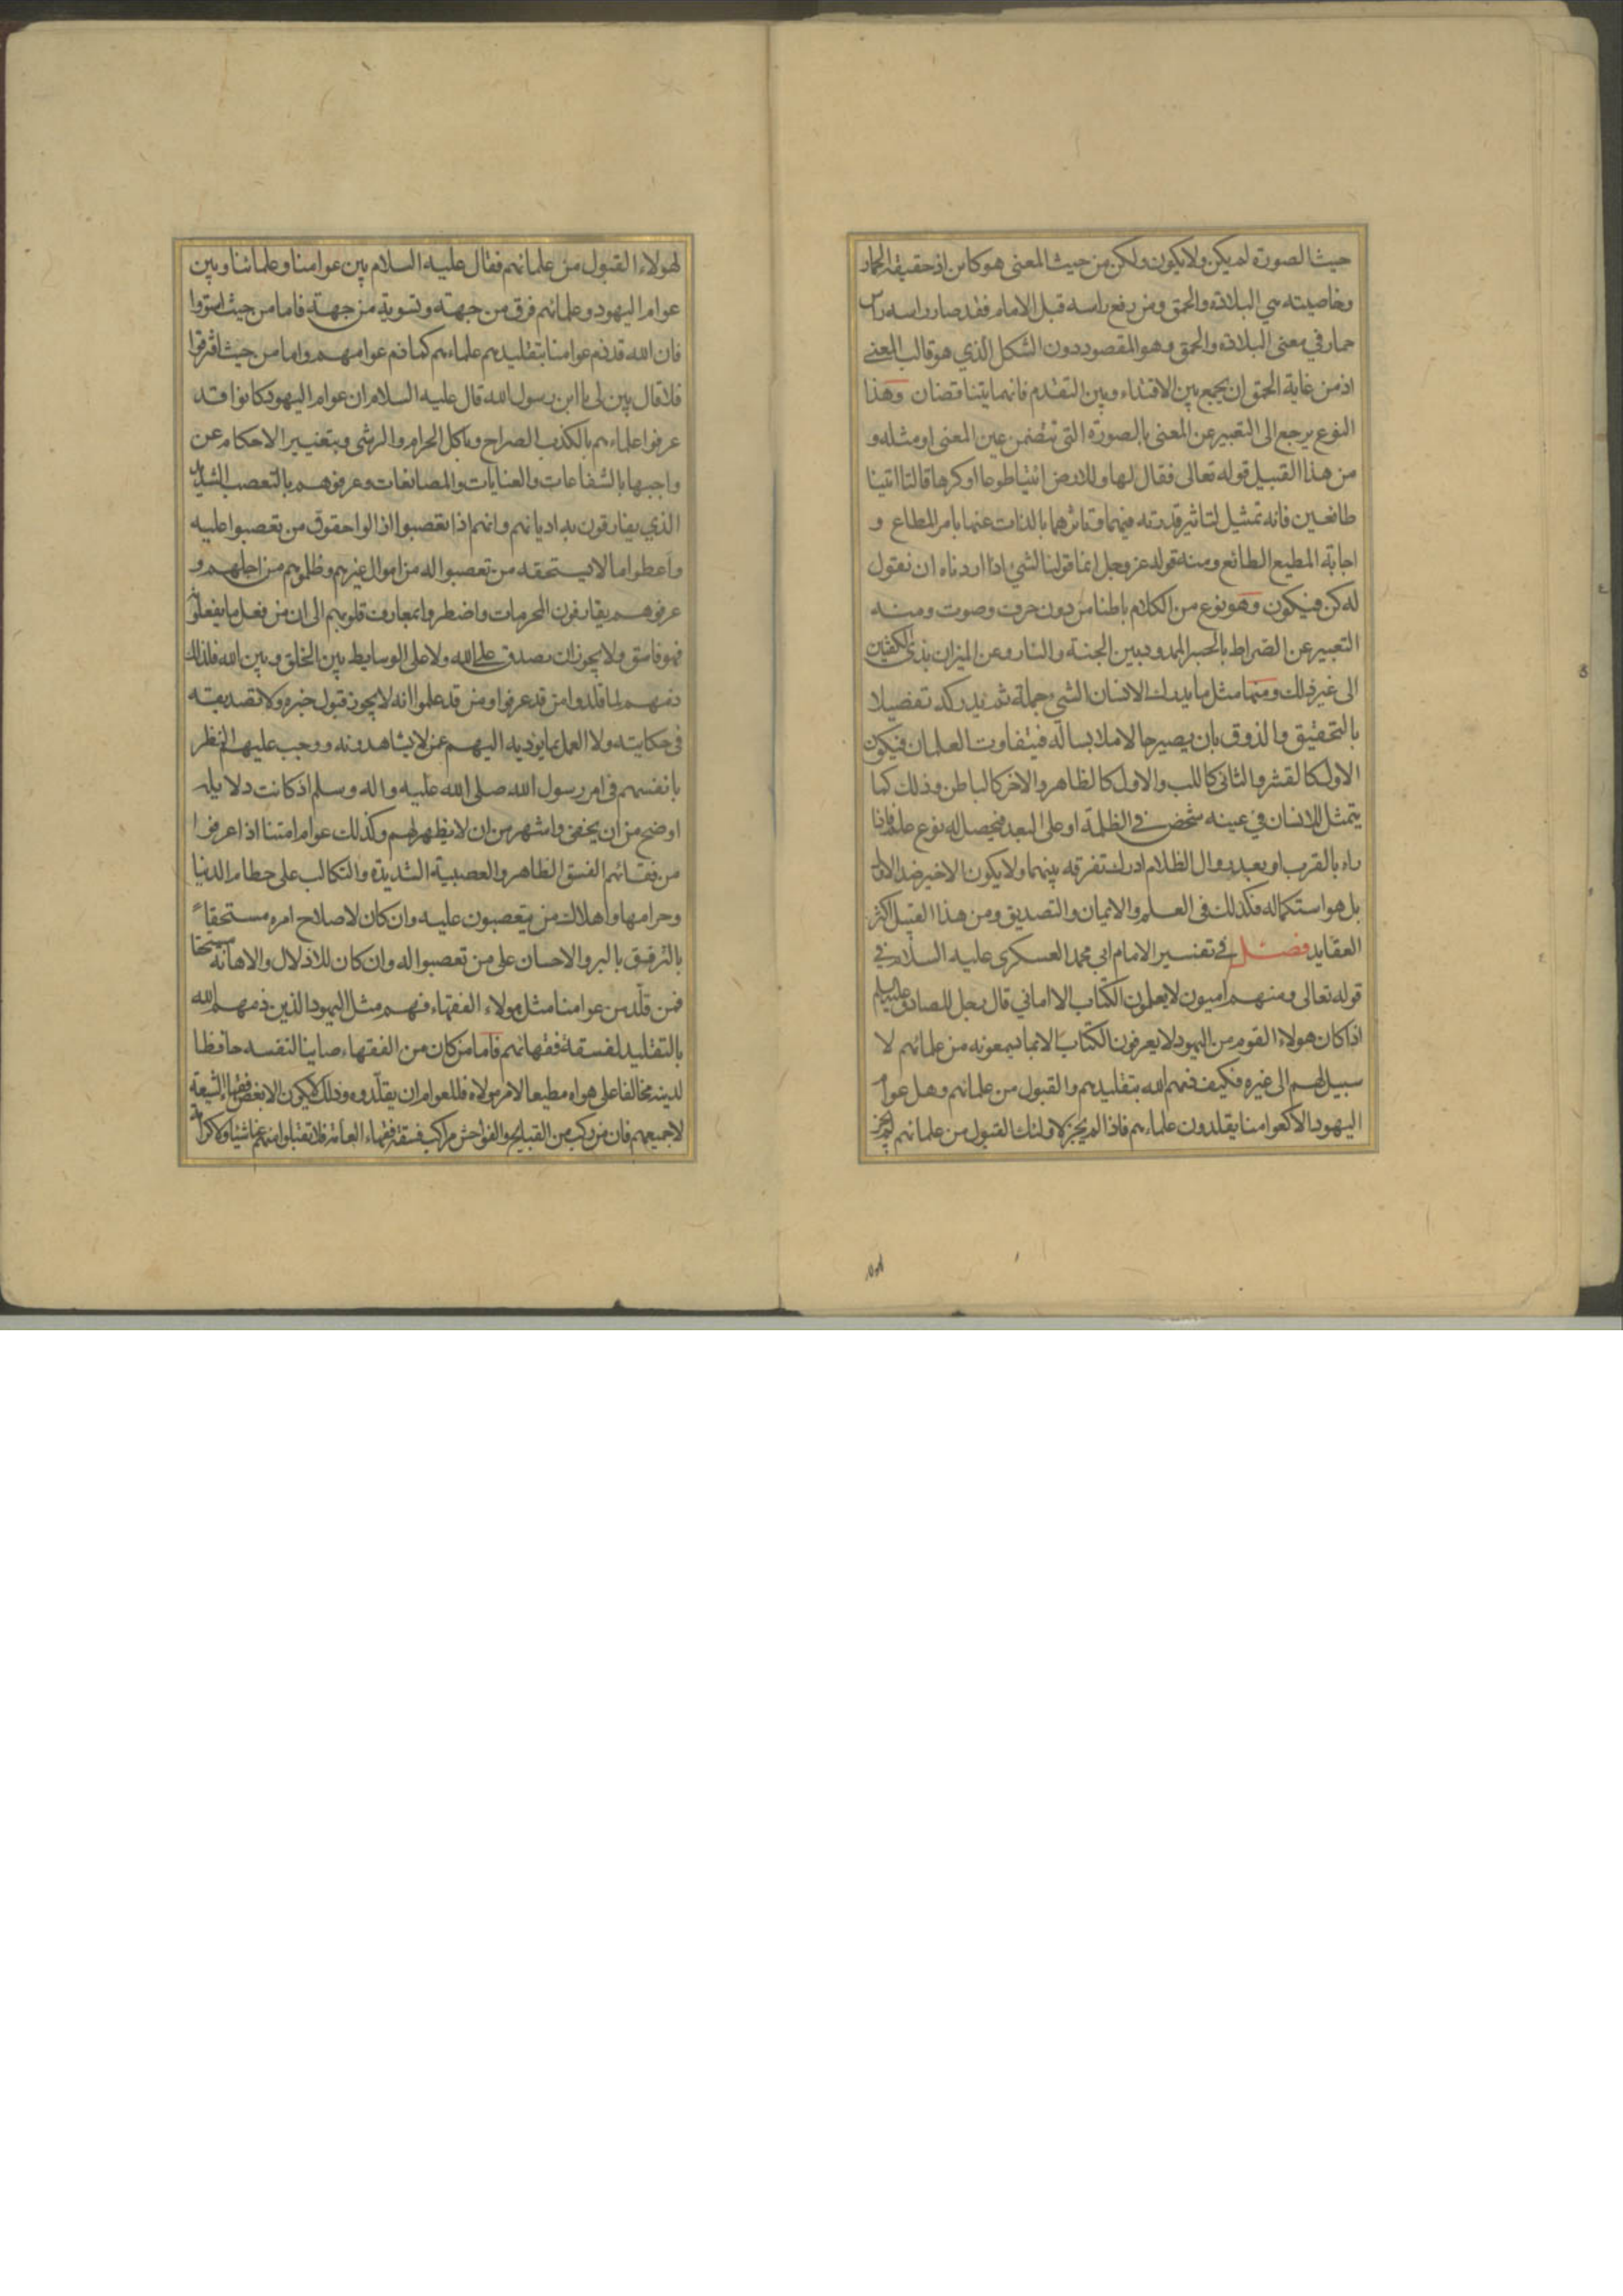 حيث الصورة لم يكن ولا يكون ولكن من حيث المعنى هو كاين اذ حقيقة الحمار
وخاصيته هي البلادة والحمق ومن رفع راسه قبل الامام فقد صار راسه راس
حمار في معنى البلادة والحمق وهو المقصود دون الشكل الذي هو قالب المعنى
اذ من غاية الحمق ان يجمع بين الاقتداء وبين التقدم فانهما يتناقضان وهذا
النوع يرجع الى التعبير عن المعنى بالصورة التى تتضمن عين المعنى او مثله و
من هذا القبيل قوله تعالى فقال لها وللارض ائتيا طوعا او كرها قالتا اتينا
طائعين فانه تمثيل لتاثير قدرته فيهما وتاثرهما بالذات عنها بامر المطاع و
اجابة المطيع الطائع ومنه قوله عز وجل انما قولنا لشيء اذا اردناه ان نقول
له كن فيكون وهو نوع من الكلام باطنا من دون حرف وصوت ومنه
التعبير عن الصراط بالجسر الممدود بين الجنة والنار وعن الميزان بذى الكفتين
الى غير ذلك ومنها مثل ما يدرك الانسان الشيء جملة ثم يدركه تفضيلا
بالتحقيق والذوق بان يصير حالا ملابسا له فيتفاوت العلمان فيكون
الاول كالقشر والثانى كاللب والاول كالظاهر والاخر كالباطن وذلك كما
يتمثل للانسان في عينه شخص في الظلمة او على البعد فيحصل له نوع علم فاذا
راه بالقرب او بعد زوال الظلام ادرك تفرقه بينهما ولا يكون الاخير ضد الاول
بل هو استكمال له فكذلك فى العلم والايمان والتصديق ومن هذا القبيل اكثر
العقايد فصــل في تفسير الامام ابي محمد العسكرى عليه السلام في
قوله تعالى ومنهم اميون لا يعلمون الكتاب الا اماني قال رجل للصادق عليه السلم
اذا كان هولاء القوم من اليهود لا يعرفون الكتاب الا بما يسمعونه من علمائهم لا
سبيل لهم الى غيره فكيف ذمهم الله بتقليدهم والقبول من علمائهم وهل عوام
اليهود الا كعوامنا يقلدون علماءهم فاذا لم يجز لاولئك القبول من علمائهم لم يجز
لهولاء القبول من علمائهم فقال عليه السلام بين عوامنا وعلمائنا وبين
عوام اليهود وعلمائهم فرق من جهة وتسوية من جهة فاما من حيث استووا
فان الله قد ذم عوامنا بتقليدهم علماءهم كما ذم عوامهم واما من حيث افترقوا
فلا قال بين لى يا ابن رسول الله قال عليه السلام ان عوام اليهود كانوا قد
عرفوا علماءهم بالكذب الصراح وباكل الحرام والرشى وبتغيير الاحكام عن
واجبها بالشفاعات والعنايات والمصانعات وعرفوهم بالتعصب الشديد
الذي يفارقون به اديانهم وانهم اذا تعصبوا ازالوا حقوق من تعصبوا عليه
واعطوا ما لا يستحقه من تعصبوا له من اموال غيرهم وظلموهم من اجلهم و
عرفوهم يقارفون المحرمات واضطروا بمعارف قلوبهم الى ان من فعل ما يفعلونه
فهو فاسق ولا يجوز ان يصدق على الله ولا على الوسايط بين الخلق وبين الله فلذلك
ذمهم لما قلدوا من قد عرفوا ومن قد علموا انه لا يجوز قبول خبره ولا تصديقه
فى حكايته ولا العمل بما يؤديه اليهم عمن لا يشاهدونه ووجب عليهم النظر
بانفسهم فى امر رسول الله صلى الله عليه واله وسلم اذ كانت دلايله
اوضح من ان يخفى واشهر من ان لا يظهر لهم وكذلك عوام امتنا اذا عرفوا
من فقهائهم الفسق الظاهر والعصبية الشديدة والتكالب على حطام الدنيا
وحرامها واهلاك من يتعصبون عليه وان كان لاصلاح امره مستحقاً
بالترفيق بالبر والاحسان على من تعصبوا له وان كان للاذلال والاهانة مستحقا
فمن قلّد من عوامنا مثل هولاء الفقهاء فهم مثل اليهود الذين ذمهم الله
بالتقليد لفسقة فقهائهم فاما من كان من الفقهاء صاينا لنفسه حافظا
لدينه مخالفا على هواه مطيعا لامر مولاه فللعوام ان يقلّدوه وذلك لا يكون الا بعض فقهاء الشيعة
لا جميعهم فان من ركب من القبايح والفواحش مراكب فسقة فقهاء العامة فلا تقبلوا منهم عنا شيئا ولا كرامة